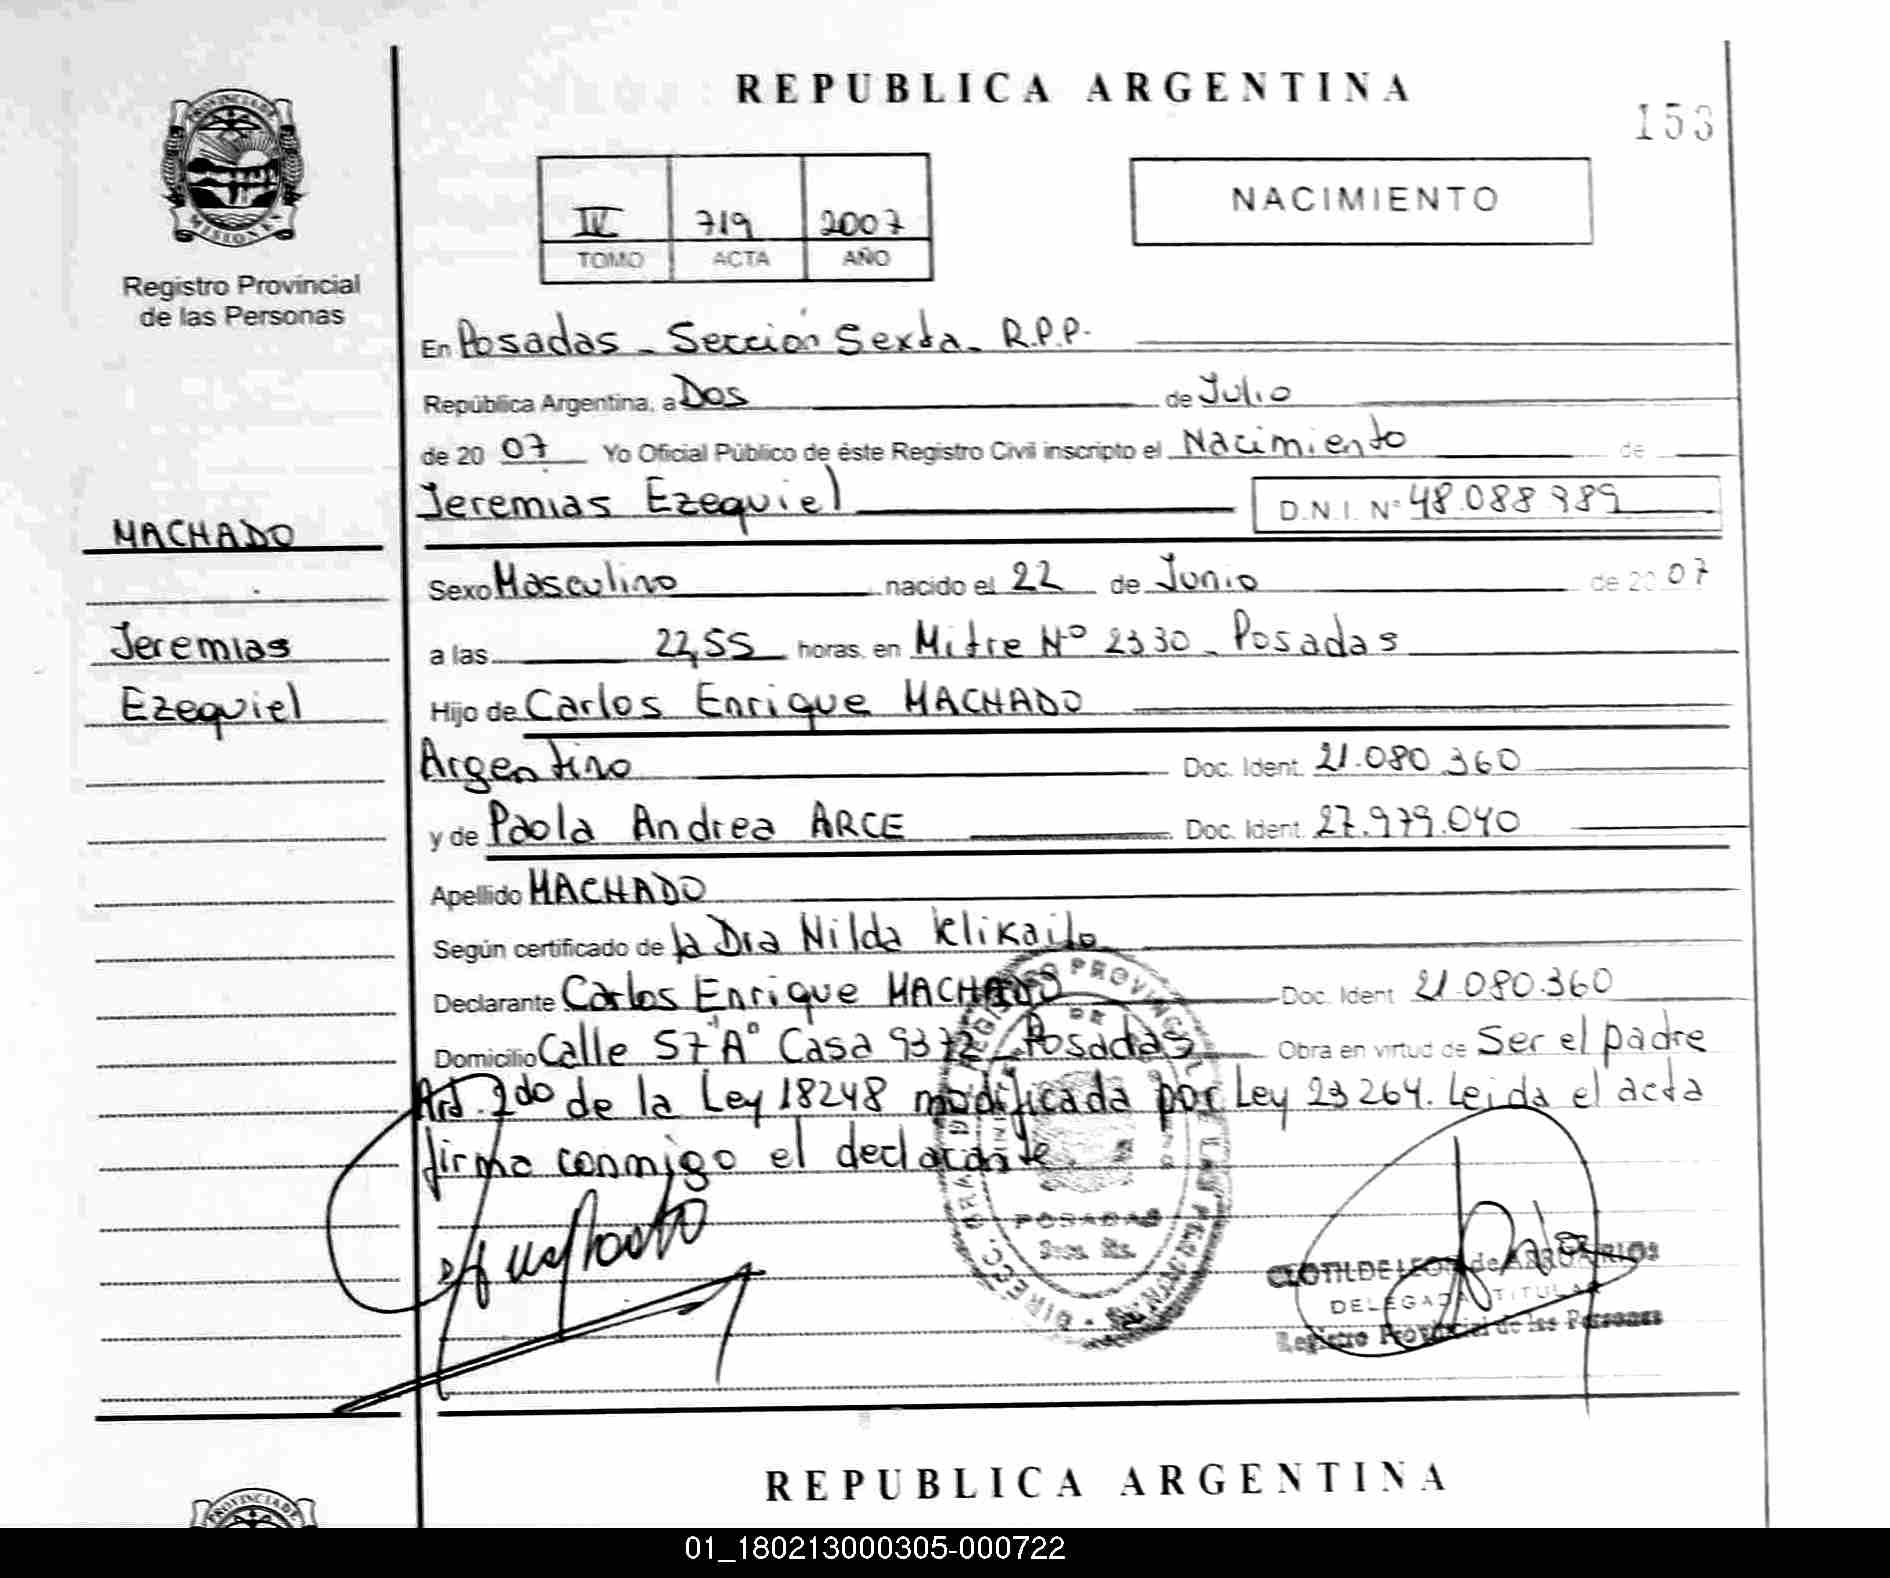 REPUBLICA ARGENTINA
153
PROVINCIA DE
MISIONES
Registro Provincial
de las Personas
IV 719 2007
TOMO ACTA AÑO
NACIMIENTO
En Posadas - Sección Sexta - R.P.P.
República Argentina, a Dos de Julio
de 2007 Yo Oficial Público de éste Registro Civil inscripto el Nacimiento de
Jeremias Ezequiel D.N.I. Nº 48.088.989
MACHADO
Sexo Masculino nacido el 22 de Junio de 2007
Jeremias
a las 22,55 horas. en Mitre Nº 2330 - Posadas
Ezequiel
Hijo de Carlos Enrique MACHADO
Argentino Doc. Ident. 21.080.360
y de Paola Andrea ARCE Doc. Ident. 27.979.040
Apellido MACHADO
Según certificado de la Dra Nilda Klikailo
Declarante Carlos Enrique MACHADO Doc. Ident 21.080.360
Domicilio Calle 57 "A" Casa 9372 - Posadas Obra en virtud de Ser el padre
Art. 2do de la Ley 18248 modificada por Ley 23264. Leida el acta
firma conmigo el declarante.
POSADAS
CLOTILDE LEON de
DELEGADA TITULAR
Registro Provincial de las Personas
REPUBLICA ARGENTINA
PROVINCIA DE
01_180213000305-000722